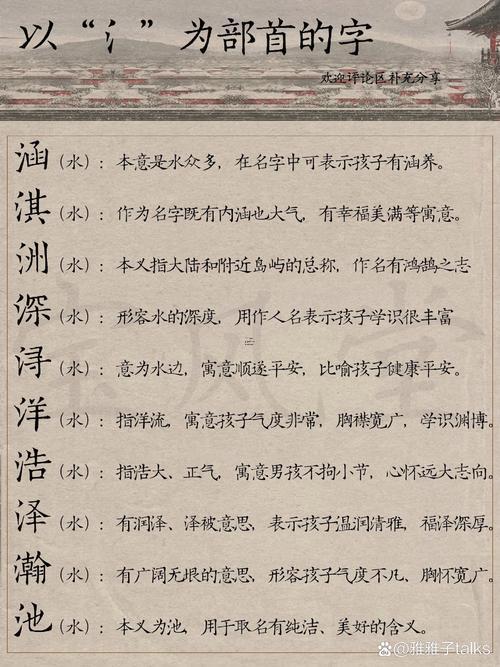 以“氵”为部首的字
欢迎评论区补充分享
涵（水）：本意是水众多，在名字中可表示孩子有涵养。
淇（水）：作为名字既有内涵也大气，有幸福美满等寓意。
洲（水）：本义指大陆和附近岛屿的总称，作名有鸿鹄之志
深（水）：形容水的深度，用作人名表示孩子学识很丰富
浔（水）：意为水边，寓意顺遂平安，比喻孩子健康平安。
洋（水）：指洋流，寓意孩子气度非常，胸襟宽广，学识渊博。
浩（水）：指浩大、正气，寓意男孩不拘小节，心怀远大志向。
泽（水）：有润泽、泽被意思，表示孩子温润清雅，福泽深厚。
瀚（水）：有广阔无垠的意思，形容孩子气度不凡、胸怀宽广。
池（水）：本义为池，用于取名有纯洁、美好的含义。
@雅雅子talks